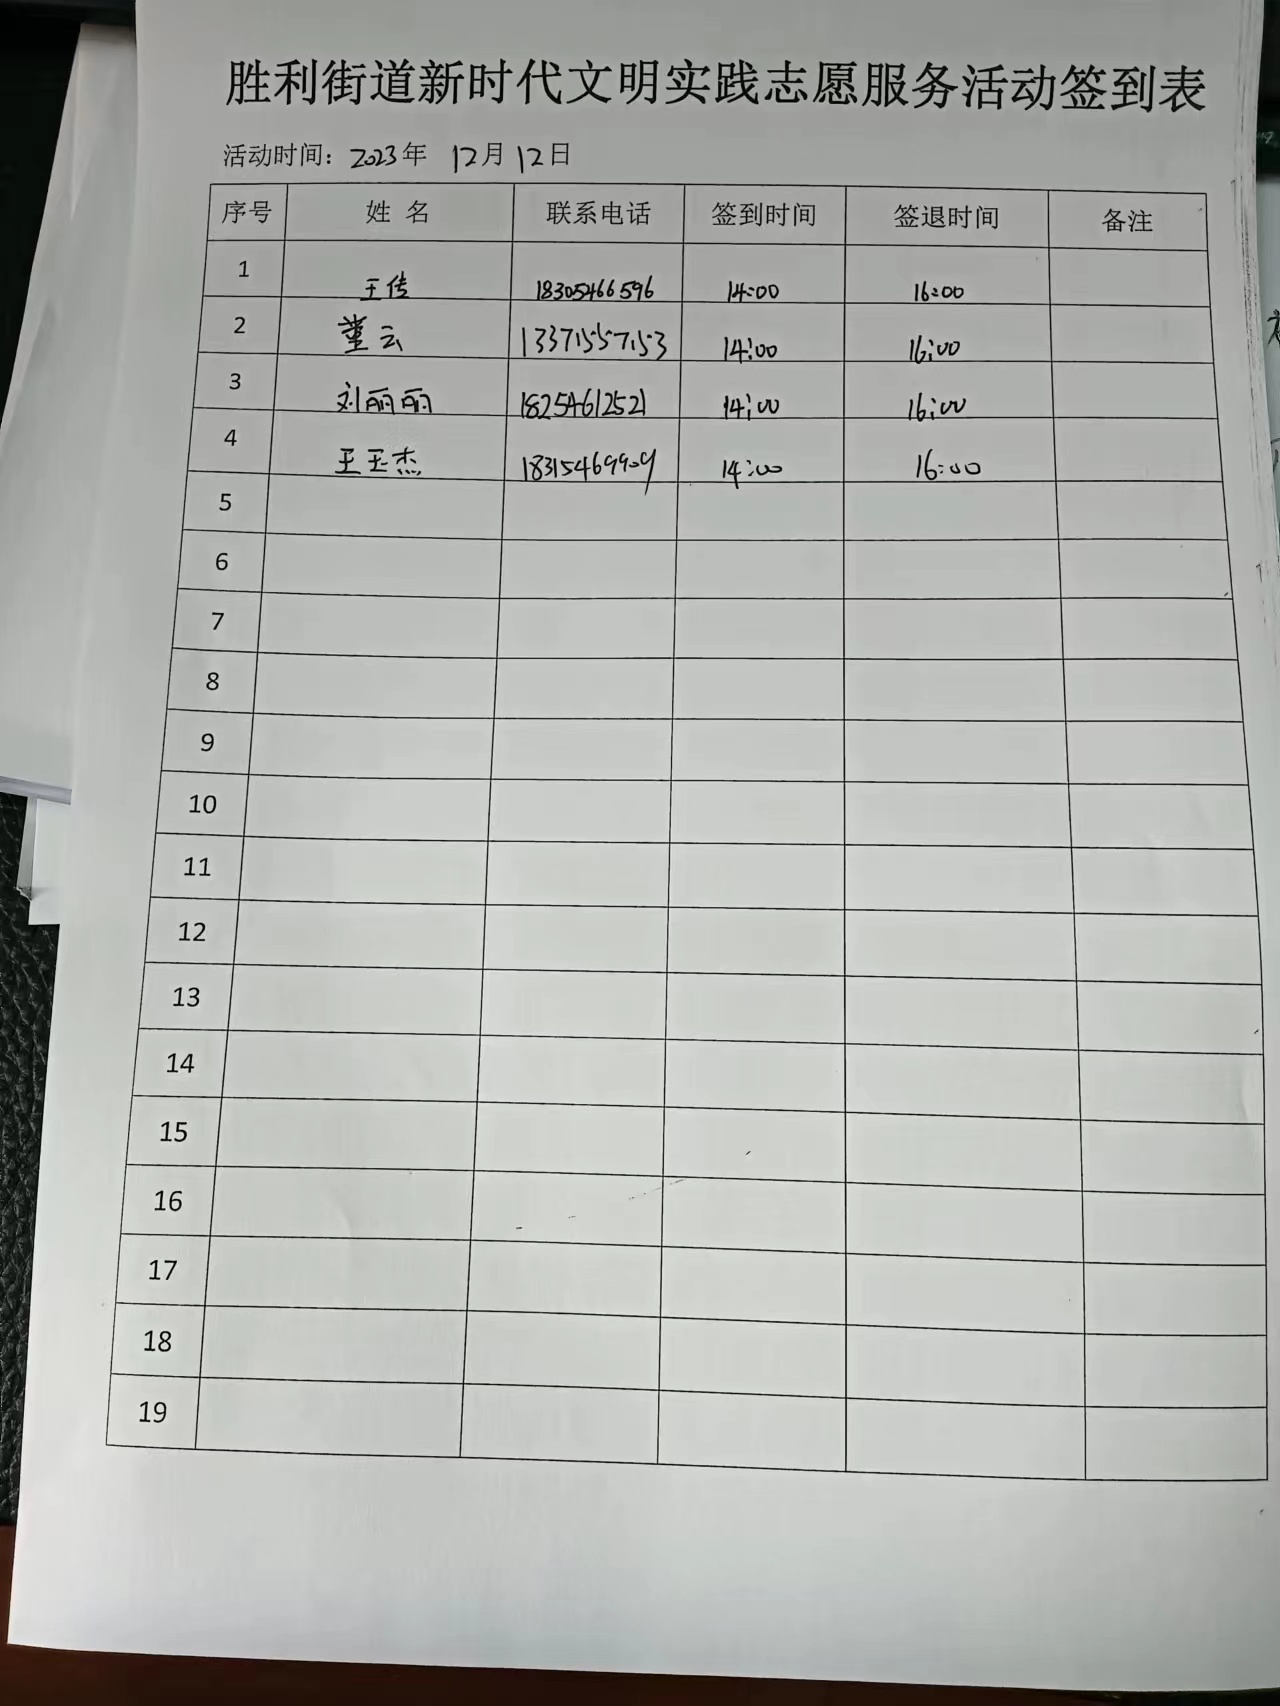 胜利街道新时代文明实践志愿服务活动签到表
活动时间：2023年 12月12日
序号 姓 名 联系电话 签到时间 签退时间 备注
1 王传 18305466596 14:00 16:00
2 董云 13371557153 14:00 16:00
3 刘丽丽 18254612521 14:00 16:00
4 王玉杰 18315469909 14:00 16:00
5
6
7
8
9
10
11
12
13
14
15
16
17
18
19